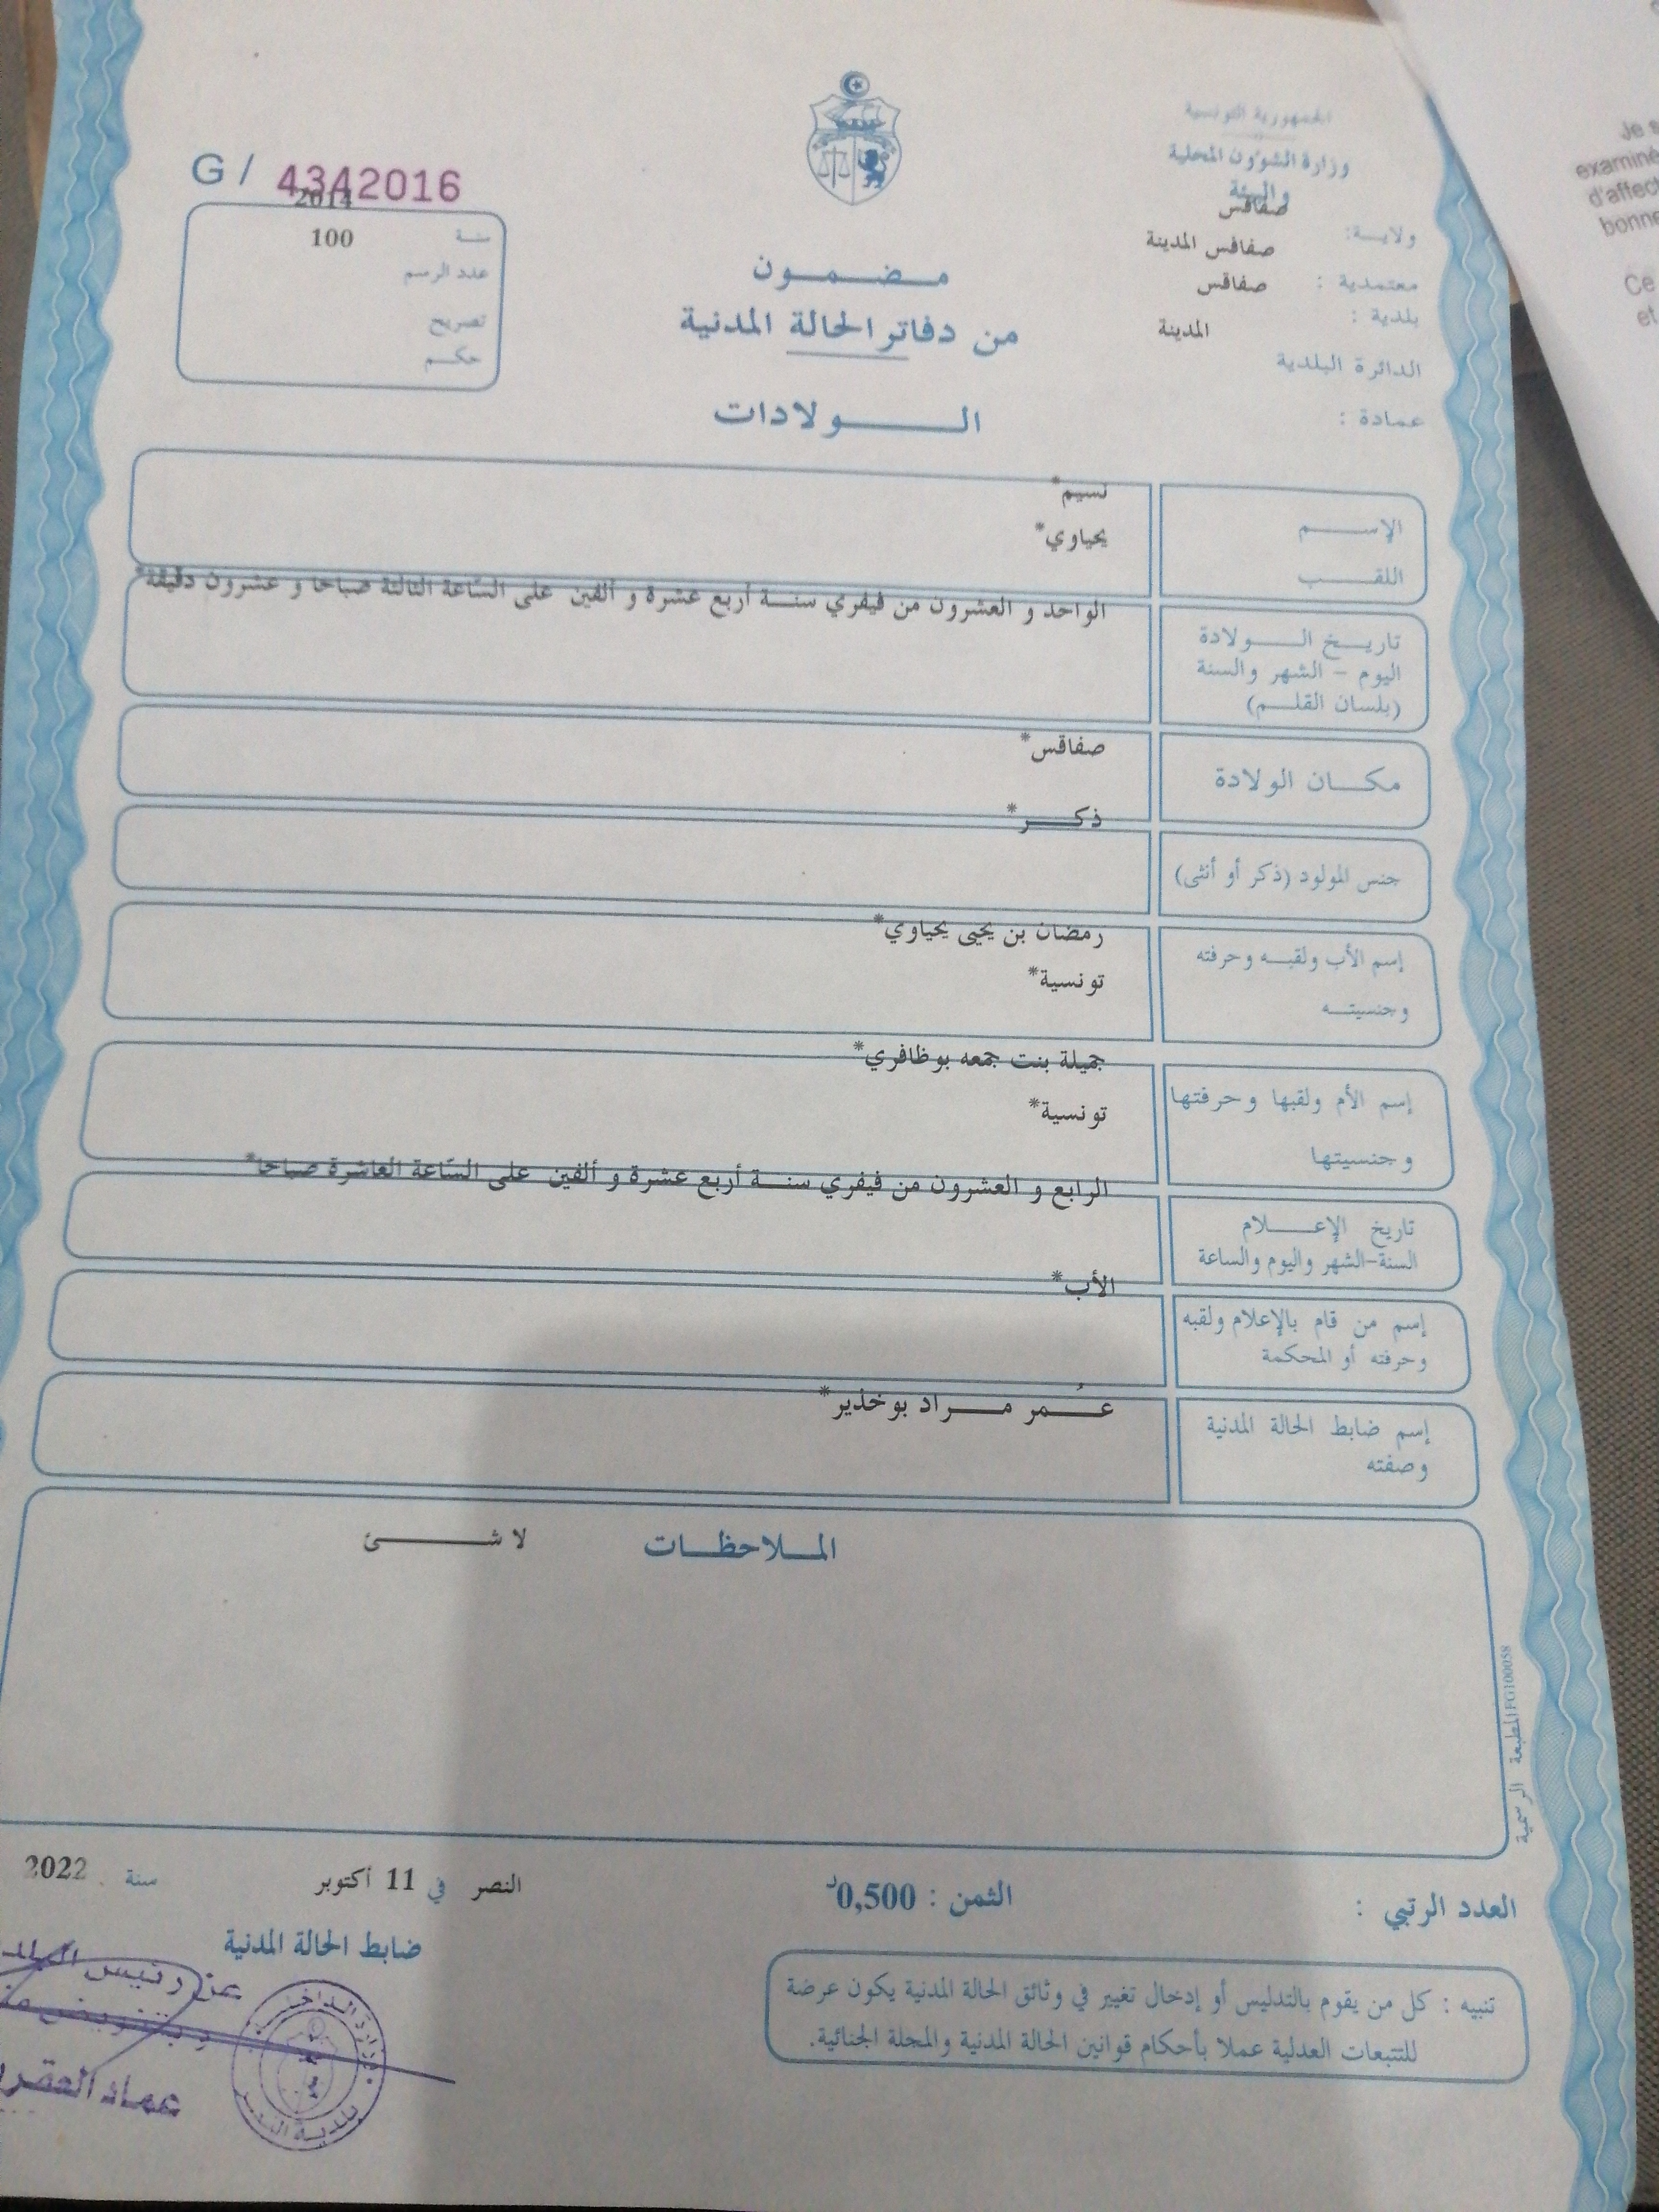 الجمهورية التونسية
وزارة الشؤون المحلية
والبيئة
ولاية: صفاقس
معتمدية : صفاقس المدينة
بلدية : صفاقس
الدائرة البلدية المدينة
عمادة :
G / 4342016
سنة 2014
عدد الرسم 100
تصريح
حكم
مضمون
من دفاتر الحالة المدنية
الولادات
الإسم نسيم*
اللقب يحياوي*
تاريخ الولادة
اليوم - الشهر والسنة
(بلسان القلم)
الواحد و العشرون من فيفري سنة أربع عشرة و ألفين على السّاعة الثالثة صباحا و عشرون دقيقة*
مكان الولادة صفاقس*
جنس المولود (ذكر أو أنثى) ذكر*
إسم الأب ولقبه وحرفته رمضان بن يحيى يحياوي*
وجنسيته تونسية*
إسم الأم ولقبها وحرفتها جميلة بنت جمعه بوظافري*
وجنسيتها تونسية*
تاريخ الإعلام
السنة-الشهر واليوم والساعة
الرابع و العشرون من فيفري سنة أربع عشرة و ألفين على السّاعة العاشرة صباحا*
إسم من قام بالإعلام ولقبه
وحرفته أو المحكمة
الأب*
إسم ضابط الحالة المدنية
وصفته
عُمر مراد بوخذير*
الملاحظات لا شئ
المطبعة الرسمية FG100058
العدد الرتبي :
الثمن : 0,500د
النصر في 11 أكتوبر سنة 2022
ضابط الحالة المدنية
عن رئيس
عماد
تنبيه : كل من يقوم بالتدليس أو إدخال تغيير في وثائق الحالة المدنية يكون عرضة
للتتبعات العدلية عملا بأحكام قوانين الحالة المدنية والمجلة الجنائية.
Je
examiné
d'affect
bonne
Ce
et